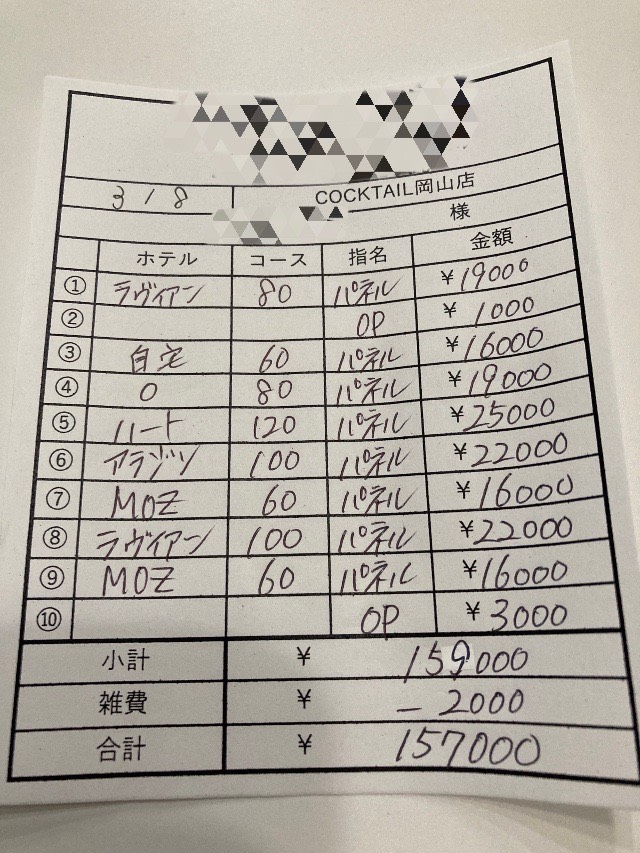 318 COCKTAIL岡山店
様
ホテル コース 指名 金額
① ラヴィアン 80 パネル ¥19000
② OP ¥1000
③ 自宅 60 パネル ¥16000
④ O 80 パネル ¥19000
⑤ ハート 120 パネル ¥25000
⑥ アラジン 100 パネル ¥22000
⑦ MOZ 60 パネル ¥16000
⑧ ラヴィアン 100 パネル ¥22000
⑨ MOZ 60 パネル ¥16000
⑩ OP ¥3000
小計 ¥ 159000
雑費 ¥ -2000
合計 ¥ 157000